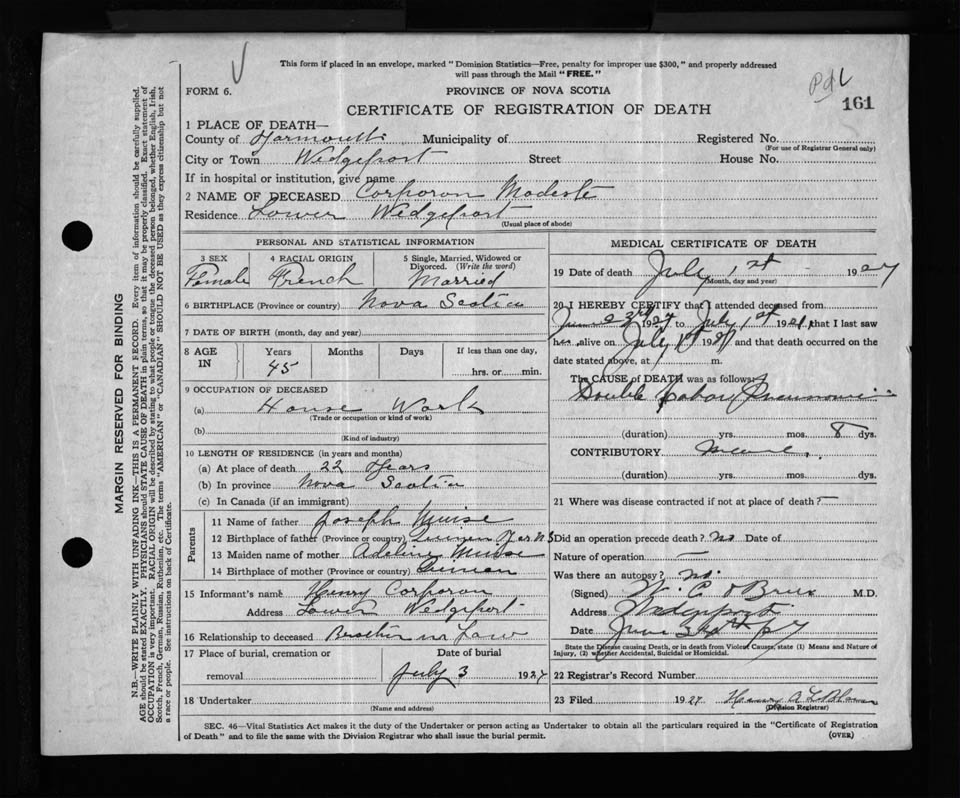 This form if placed in an envelope, marked "Dominion Statistics—Free, penalty for improper use $300," and properly addressed
will pass through the Mail "FREE."
PdL
161
FORM 6.
PROVINCE OF NOVA SCOTIA
CERTIFICATE OF REGISTRATION OF DEATH
1 PLACE OF DEATH—
County of Yarmouth Municipality of Registered No.
(For use of Registrar General only)
City or Town Wedgeport Street House No.
If in hospital or institution, give name
2 NAME OF DECEASED Corporon Modeste
Residence Lower Wedgeport
(Usual place of abode)
PERSONAL AND STATISTICAL INFORMATION
3 SEX 4 RACIAL ORIGIN 5 Single, Married, Widowed or
Divorced. (Write the word)
Female French Married
6 BIRTHPLACE (Province or country) Nova Scotia
7 DATE OF BIRTH (month, day and year)
8 AGE IN Years Months Days If less than one day,
45 hrs. or min.
9 OCCUPATION OF DECEASED
(a) House Work
(Trade or occupation or kind of work)
(b)
(Kind of industry)
10 LENGTH OF RESIDENCE (in years and months)
(a) At place of death 22 Years
(b) In province Nova Scotia
(c) In Canada (if an immigrant)
Parents
11 Name of father Joseph Muise
12 Birthplace of father (Province or country) Quinan Yar N S
13 Maiden name of mother Adeline Muise
14 Birthplace of mother (Province or country) Quinan
15 Informant's name Henry Corporon
Address Lower Wedgeport
16 Relationship to deceased Brother in Law
17 Place of burial, cremation or Date of burial
removal July 3 1927
18 Undertaker
(Name and address)
MEDICAL CERTIFICATE OF DEATH
19 Date of death July 1st 1927
(Month, day and year)
20 I HEREBY CERTIFY that I attended deceased from
June 23rd 1927 to July 1st 1927, that I last saw
her alive on July 1st 1927 and that death occurred on the
date stated above, at m.
The CAUSE of DEATH was as follows:
Double Lobar Pneumonia
(duration) yrs. mos. 8 dys.
CONTRIBUTORY
(duration) yrs. mos. dys.
21 Where was disease contracted if not at place of death? —
Did an operation precede death? No Date of
Nature of operation —
Was there an autopsy? No.
(Signed) M.D.
Address Wedgeport
Date June
State the Disease causing Death, or in death from Violent Causes, state (1) Means and Nature of
Injury, (2) whether Accidental, Suicidal or Homicidal.
22 Registrar's Record Number
23 Filed 1927 Henry A LeBlanc
(Division Registrar)
SEC. 46—Vital Statistics Act makes it the duty of the Undertaker or person acting as Undertaker to obtain all the particulars required in the "Certificate of Registration
of Death" and to file the same with the Division Registrar who shall issue the burial permit.
(OVER)
MARGIN RESERVED FOR BINDING
N.B.—WRITE PLAINLY WITH UNFADING INK—THIS IS A PERMANENT RECORD. Every item of information should be carefully supplied.
AGE should be stated EXACTLY. PHYSICIANS should STATE CAUSE OF DEATH in plain terms, so that it may be properly classified. Exact statement of
OCCUPATION is very important. RACIAL ORIGIN will be described by stating to what people or tongue the deceased person belonged, whether English, Irish,
Scotch, French, German, Russian, Ruthenian, etc. The terms "AMERICAN" or "CANADIAN" SHOULD NOT BE USED as they express citizenship but not
a race or people. See instructions on back of Certificate.